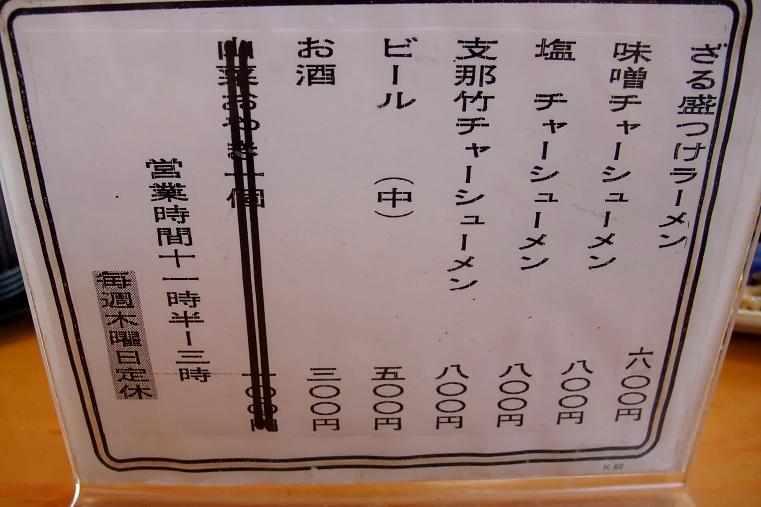 ざる盛つけラーメン 六〇〇円
味噌チャーシューメン 八〇〇円
塩 チャーシューメン 八〇〇円
支那竹チャーシューメン 八〇〇円
ビール (中) 五〇〇円
お酒 三〇〇円
山菜おやき一個 一〇〇円
営業時間十一時半ー三時
毎週木曜日定休
K. 60